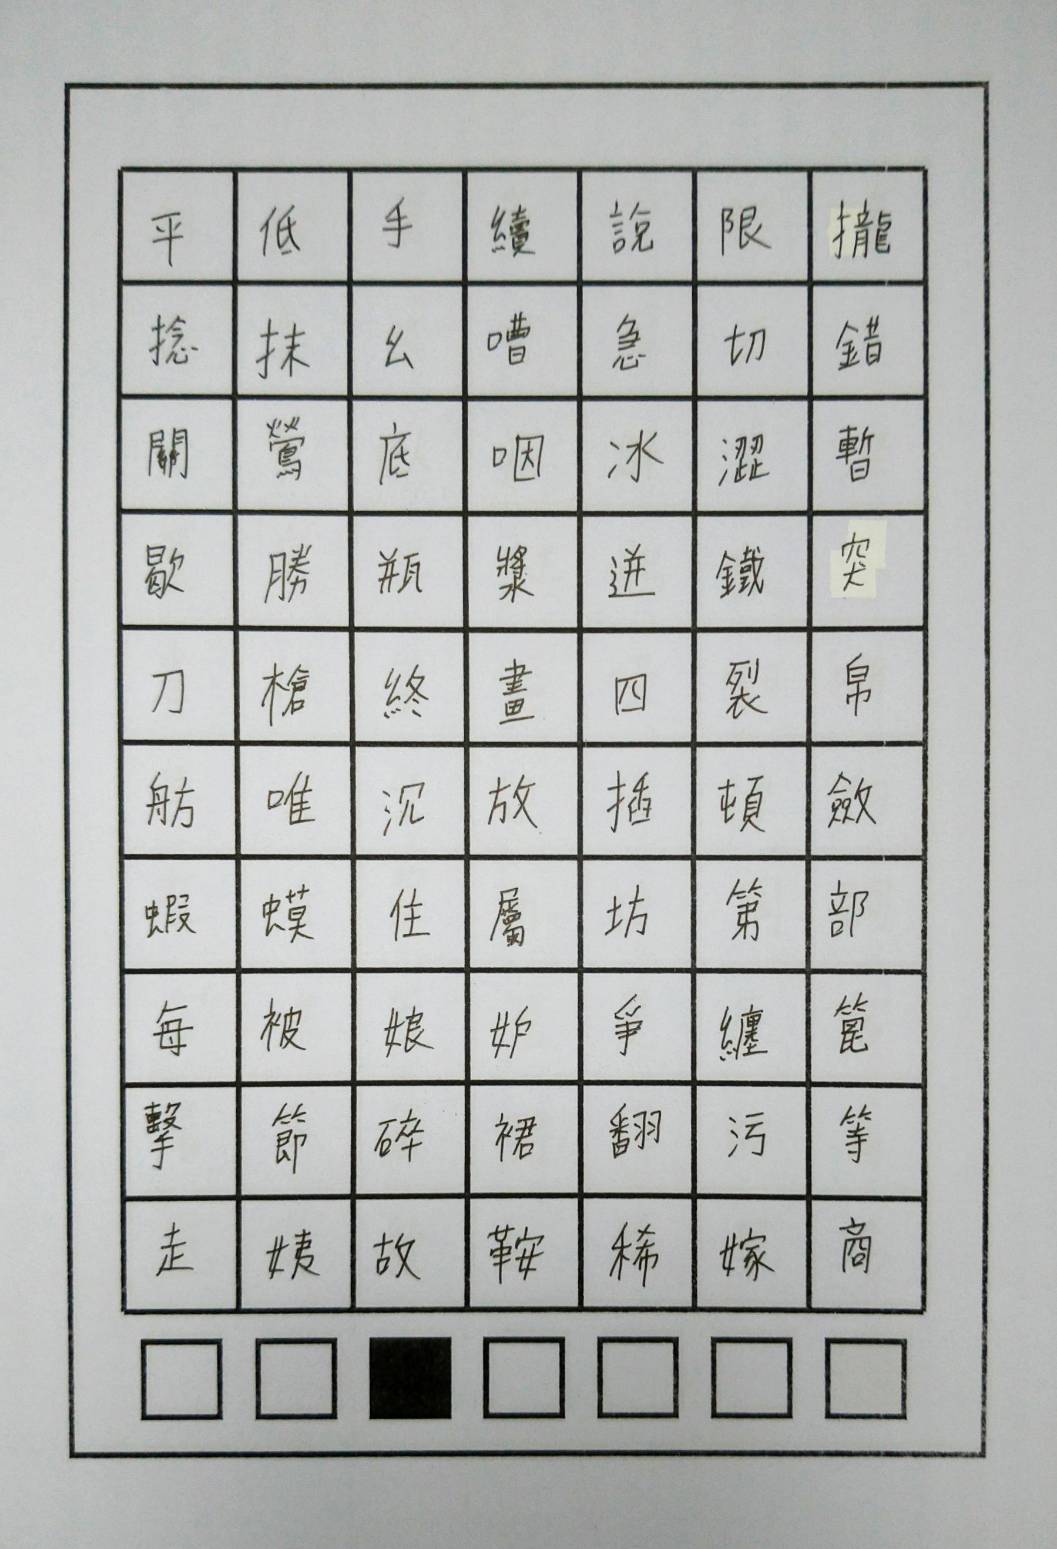 平 低 手 續 說 限 攏
捻 抹 幺 嘈 急 切 錯
關 鶯 底 咽 冰 澀 暫
歇 勝 瓶 漿 迸 鐵 突
刀 槍 終 畫 四 裂 帛
舫 唯 沉 放 插 頓 斂
蝦 蟆 住 屬 坊 第 部
每 被 娘 妒 爭 纏 篦
擊 節 碎 裙 翻 污 等
走 姨 故 鞍 稀 嫁 商